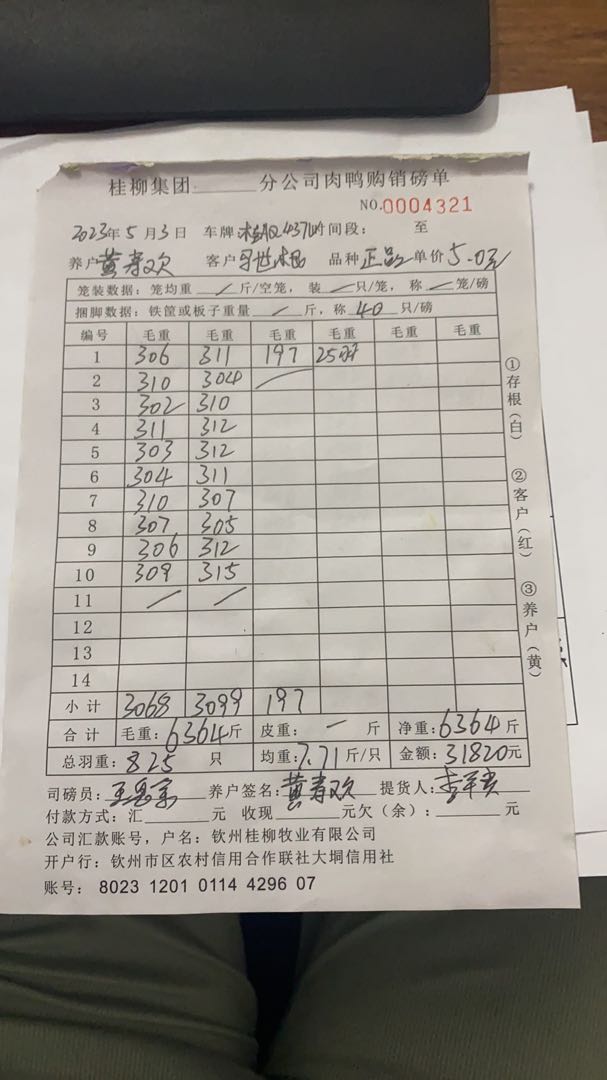 桂柳集团 分公司肉鸭购销磅单
NO.0004321
2023年5月3日 车牌 时间段: 至
养户黄寿欢 客户 品种正品 单价5.0元
笼装数据:笼均重/斤/空笼,装/只/笼,称/笼/磅
捆脚数据:铁筐或板子重量/斤,称40只/磅
编号 毛重 毛重 毛重 毛重 毛重 毛重
1 306 311 197 25羽
2 310 304 /
3 302 310
4 311 312
5 303 312
6 304 311
7 310 307
8 307 305
9 306 312
10 309 315
11 / /
12
13
14
小计 3068 3099 197
合计 毛重:6364斤 皮重:/斤 净重:6364斤
总羽重:825只 均重:7.71斤/只 金额:31820元
司磅员: 养户签名:黄寿欢 提货人:
付款方式:汇 元 收现 元欠(余): 元
公司汇款账号,户名:钦州桂柳牧业有限公司
开户行:钦州市区农村信用合作联社大垌信用社
账号:8023 1201 0114 4296 07
①存根(白)
②客户(红)
③养户(黄)